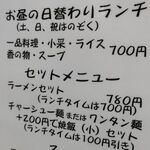 お昼の日替わりランチ
(土、日、祝はのぞく)
一品料理・小菜・ライス
香の物・スープ 700円
セットメニュー
ラーメンセット 780円
(ランチタイムは700円)
チャーシュー麺またはワンタン麺
+200円で焼飯(小)セット
(ランチタイムは100円引き)